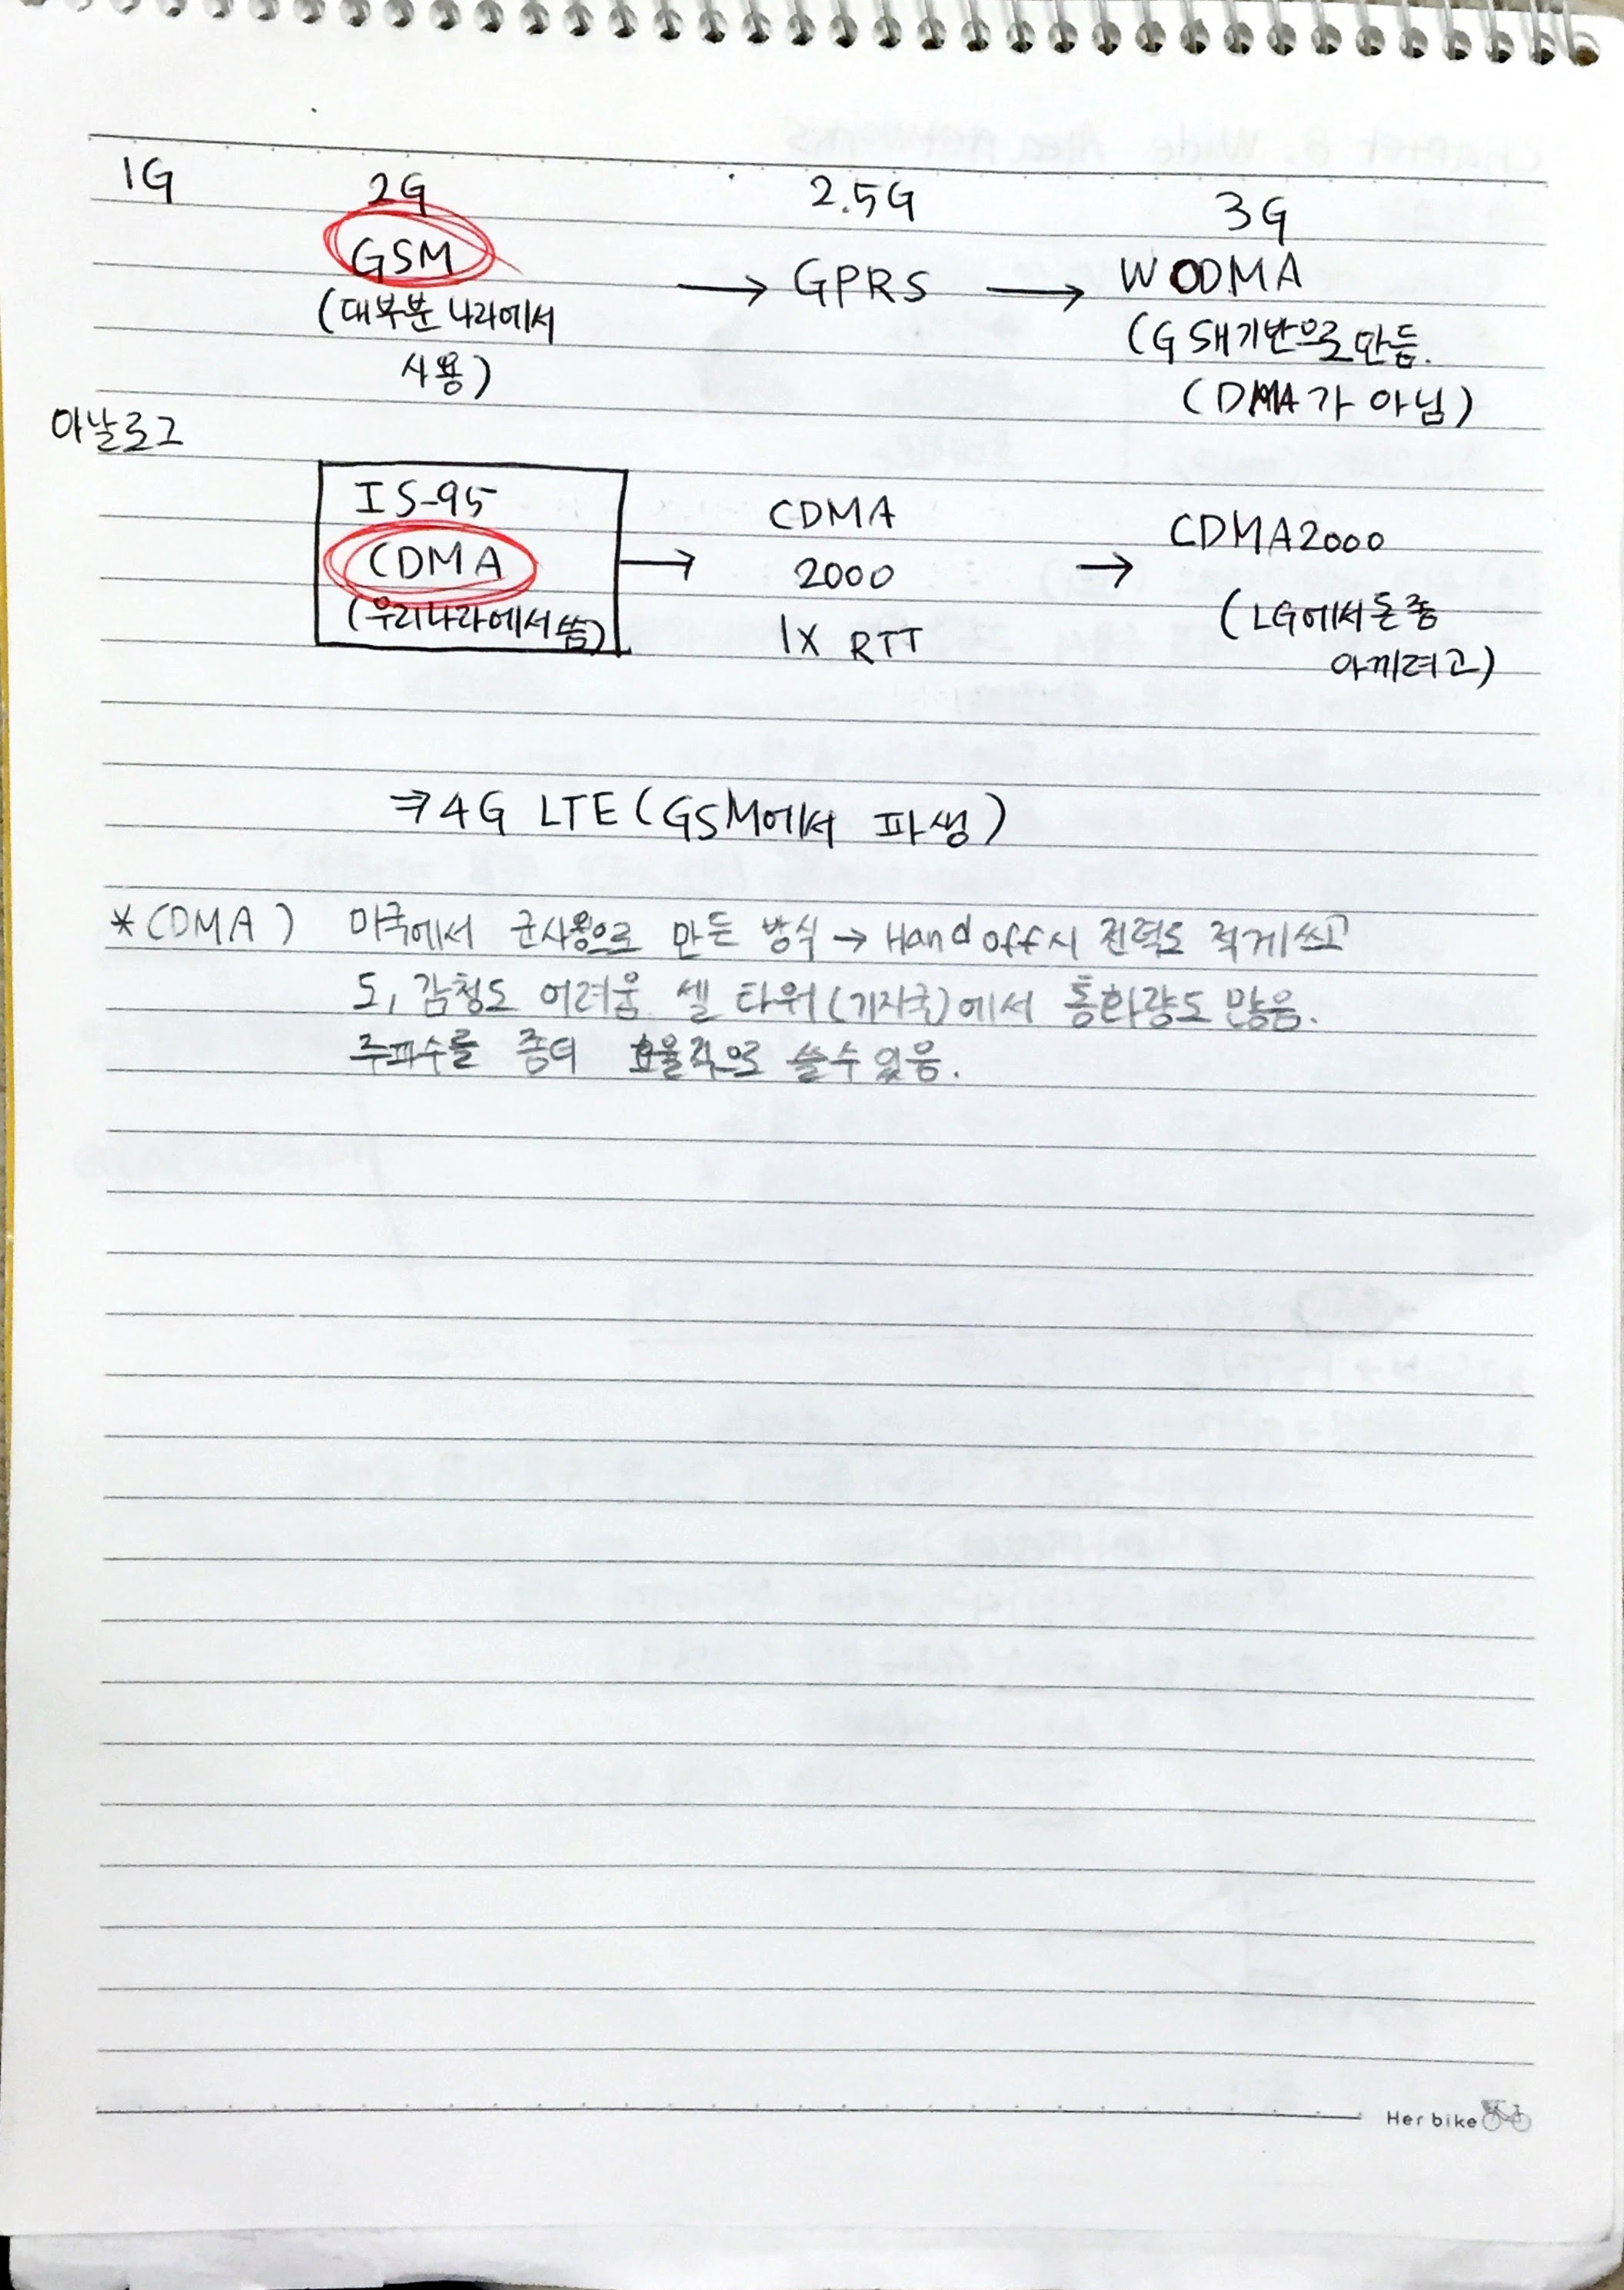 1G 2G 2.5G 3G
GSM → GPRS → WCDMA
(대부분 나라에서
사용)
(GSM기반으로 만듬.
(DMA가 아님)
아날로그
IS-95
CDMA
(우리나라에서 씀)
→ CDMA
2000
1X RTT
→ CDMA2000
(LG에서 돈 좀
아끼려고)
⇒ 4G LTE (GSM에서 파생)
*CDMA) 미국에서 군사용으로 만든 방식 → Hand off시 전력도 적게쓰고
도, 감청도 어려움 셀 타워(기지국)에서 통화량도 많음.
주파수를 좀더 효율적으로 쓸수 있음.
Her bike